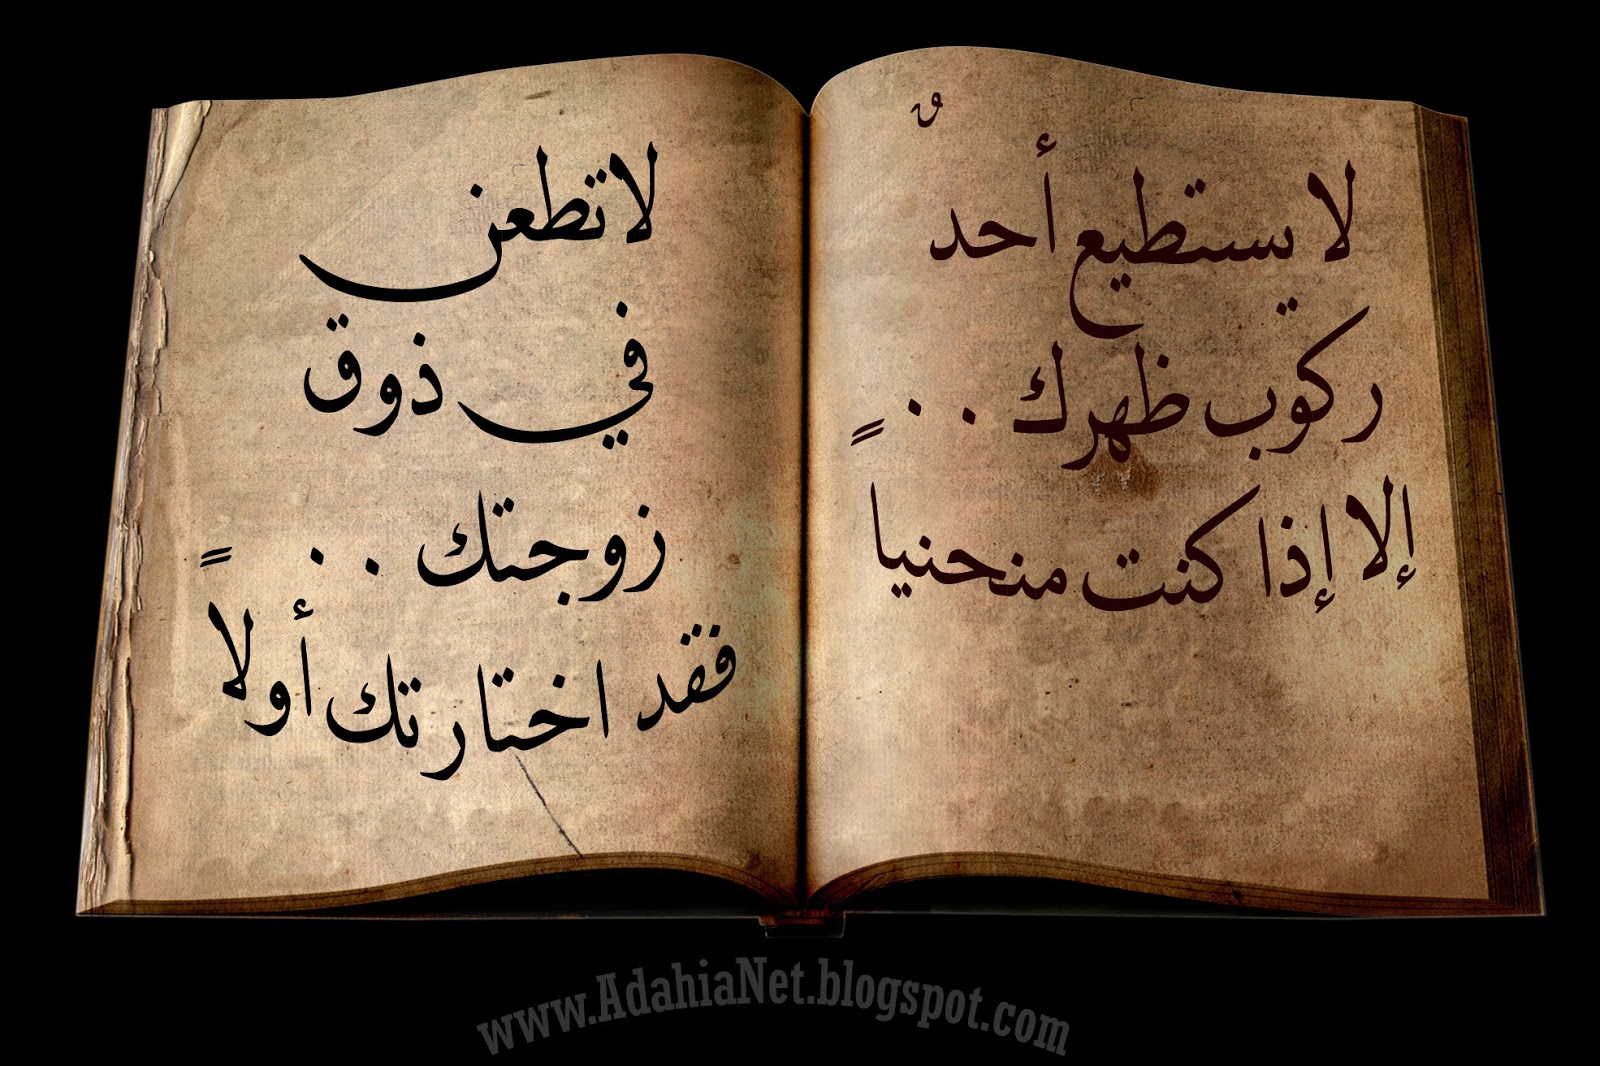 لا يستطيع أحدٌ
ركوب ظهرك . .
إلا إذا كنت منحنياً
لا تطعن
في ذوق
زوجتك . .
فقد اختارتك أولاً
www.AdahiaNet.blogspot.com